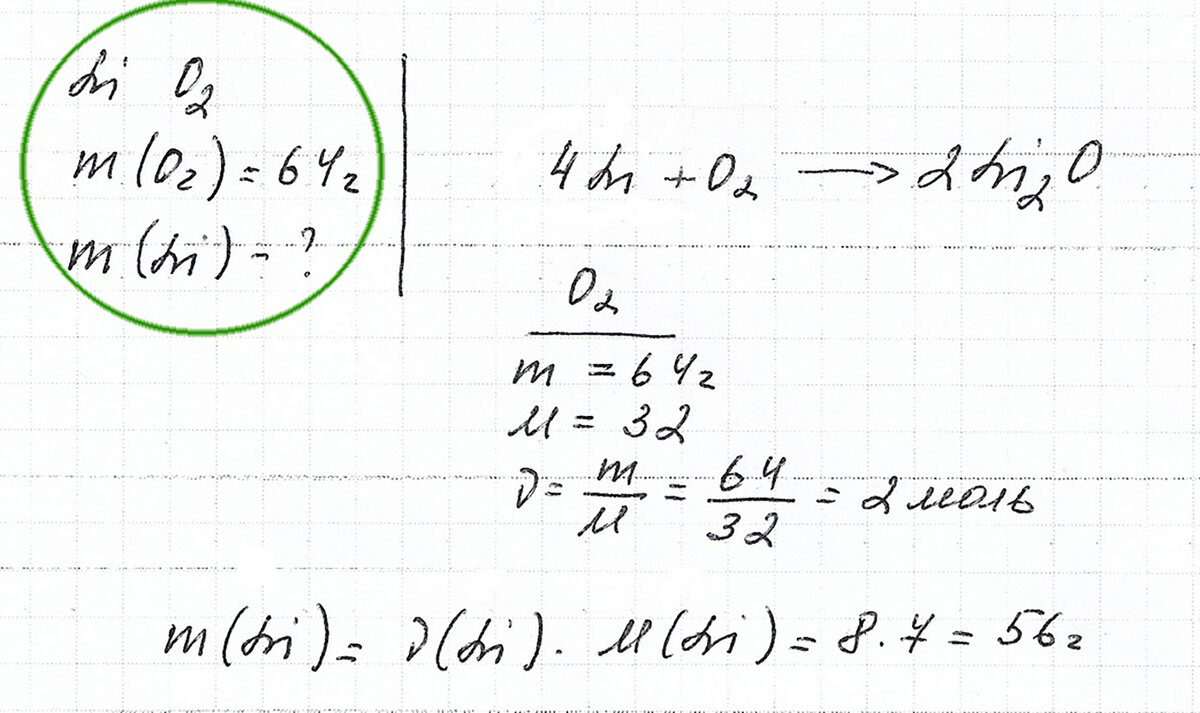 Li O₂
m (O₂) = 64г
m (Li) - ?
4Li + O₂ → 2Li₂O
O₂
m = 64г
M = 32
ν = m/M = 64/32 = 2 моль
m (Li) = ν(Li) · M(Li) = 8 · 7 = 56г